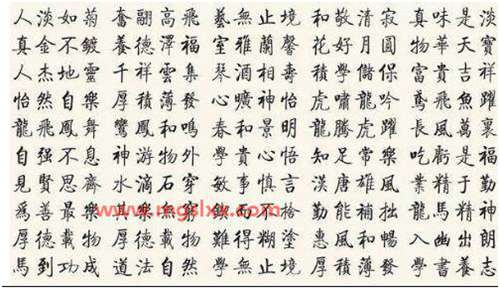 人淡如菊 奮翮高飛 藝無止境 和敬清寂 真味是淡
真金不鍍 養德澤福 室雅蘭馨 花好月圓 物華天寶
人杰地靈 千祥雲集 琴酒相壽 積學儲保 富貴吉祥
怡然自樂 厚積薄發 心曠神怡 虎嘯龍吟 鳶飛魚躍
龍飛鳳舞 鸞鳳和鳴 春和景明 龍騰虎躍 長風萬裏
自强不息 神游物外 學貴心悟 知足常樂 吃虧是福
見賢思齊 水滴石穿 敏事慎言 漢唐雄風 業精於勤
爲善最樂 勤能補拙 龍馬精神
厚德載物 難得糊塗 惠風和暢 入幽出朗
馬到功成 道法自然 學無止境 厚積薄發 學書養志
www.mgslxx.com